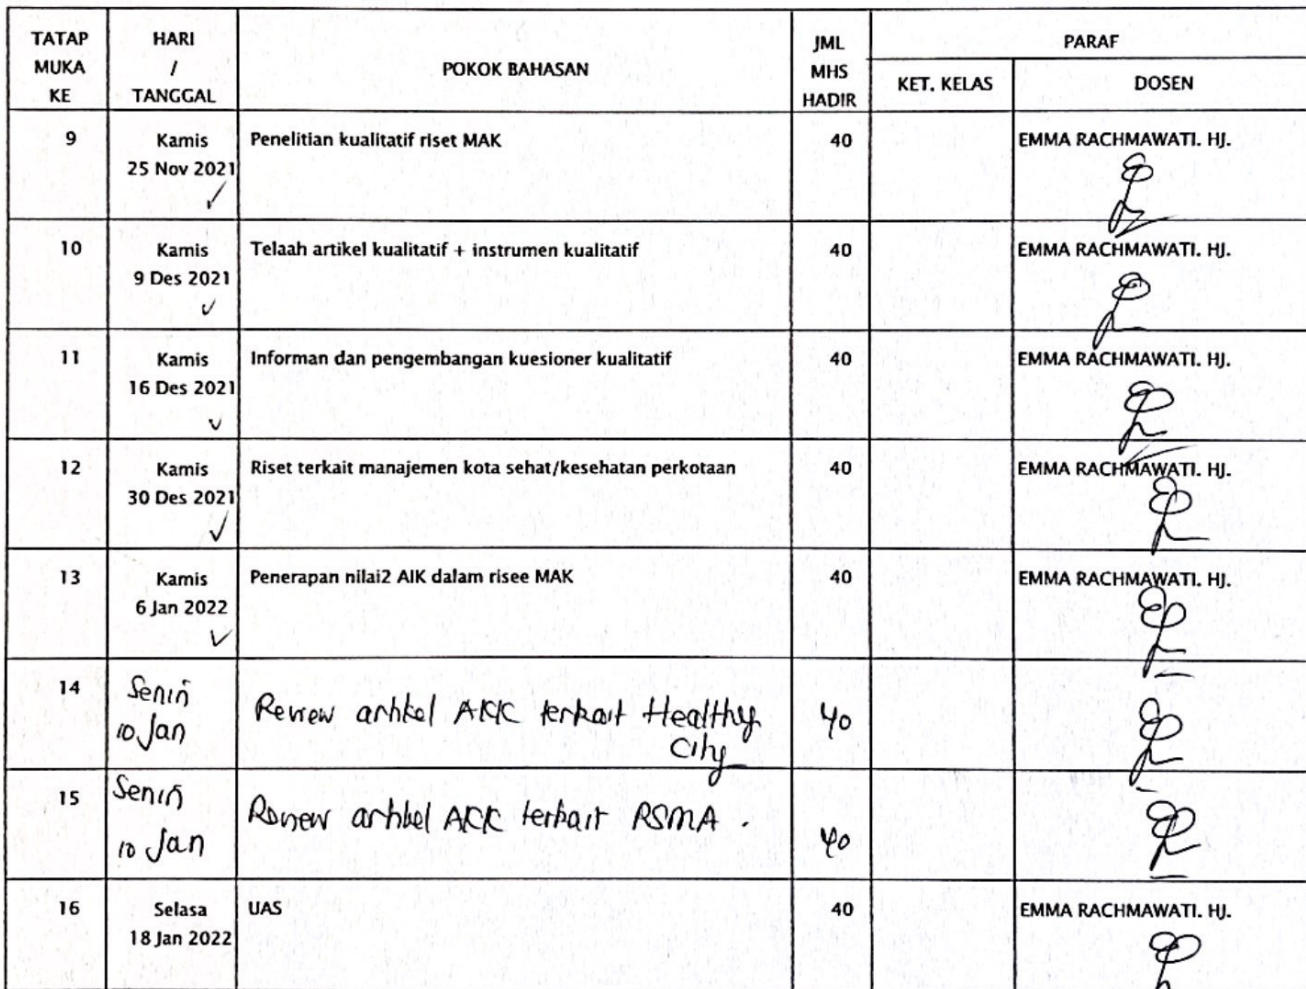 TATAP MUKA KE
HARI / TANGGAL
POKOK BAHASAN
JML MHS HADIR
PARAF
KET. KELAS
DOSEN
9
Kamis
25 Nov 2021
Penelitian kualitatif riset MAK
40
EMMA RACHMAWATI. HJ.
10
Kamis
9 Des 2021
Telaah artikel kualitatif + instrumen kualitatif
40
EMMA RACHMAWATI. HJ.
11
Kamis
16 Des 2021
Informan dan pengembangan kuesioner kualitatif
40
EMMA RACHMAWATI. HJ.
12
Kamis
30 Des 2021
Riset terkait manajemen kota sehat/kesehatan perkotaan
40
EMMA RACHMAWATI. HJ.
13
Kamis
6 Jan 2022
Penerapan nilai2 AIK dalam risee MAK
40
EMMA RACHMAWATI. HJ.
14
Senin
10 Jan
Review artikel AKK terkait Healthy
City
40
15
Senin
10 Jan
Review artikel AKK terkait RSMA.
40
16
Selasa
18 Jan 2022
UAS
40
EMMA RACHMAWATI. HJ.